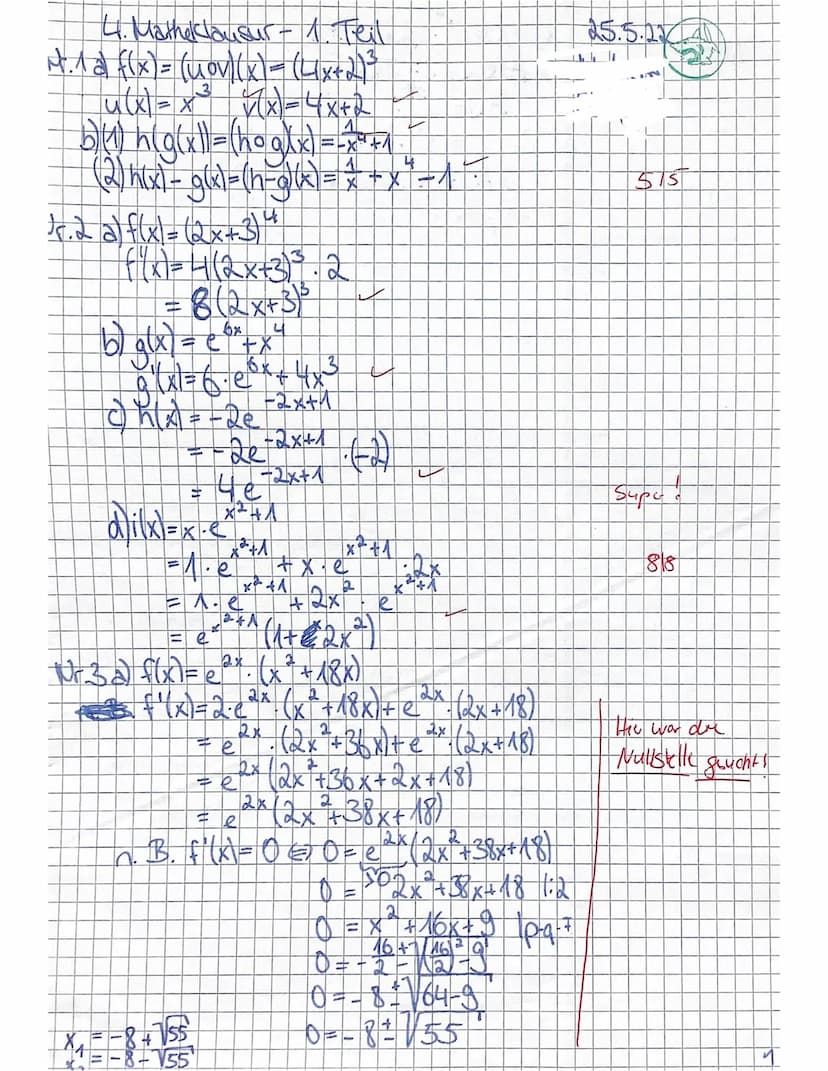 4. Matheklausur - 1. Teil 25.5.22
Nr.1 a) f(x) = (u∘v)(x) = (4x+2)³
u(x) = x³ v(x) = 4x+2 ✓
b) (1) h(g(x)) = (h∘g)(x) = 1/(-x⁴+1) ✓
(2) h(x) - g(x) = (h-g)(x) = 1/x + x⁴ - 1 ✓
5/5
Nr.2 a) f(x) = (2x+3)⁴
f'(x) = 4(2x+3)³ · 2
= 8(2x+3)³ ✓
b) g(x) = e^(6x) + x⁴
g'(x) = 6·e^(6x) + 4x³ ✓
c) h(x) = -2e^(-2x+1)
= -2e^(-2x+1) · (-2)
= 4e^(-2x+1) ✓
Super!
d) i(x) = x·e^(x²+1)
= 1·e^(x²+1) + x·e^(x²+1) · 2x
8/8
= 1·e^(x²+1) + 2x² · e^(x²+1)
= e^(x²+1) (1+2x²) ✓
Nr.3 a) f(x) = e^(2x) · (x²+18x)
f'(x) = 2·e^(2x) · (x²+18x) + e^(2x) · (2x+18)
= e^(2x) · (2x²+36x) + e^(2x) · (2x+18)
= e^(2x) (2x²+36x+2x+18)
= e^(2x) (2x²+38x+18)
Hier war die
Nullstelle gesucht!
n. B. f'(x) = 0 ⇔ 0 = e^(2x) (2x²+38x+18)
0 = 2x²+38x+18 |:2
0 = x²+16x+9 |p-q-F
0 = -16/2 ± √((16/2)²-9)
0 = -8 ± √(64-9)
0 = -8 ± √55
x₁ = -8+√55
x₂ = -8-√55
1